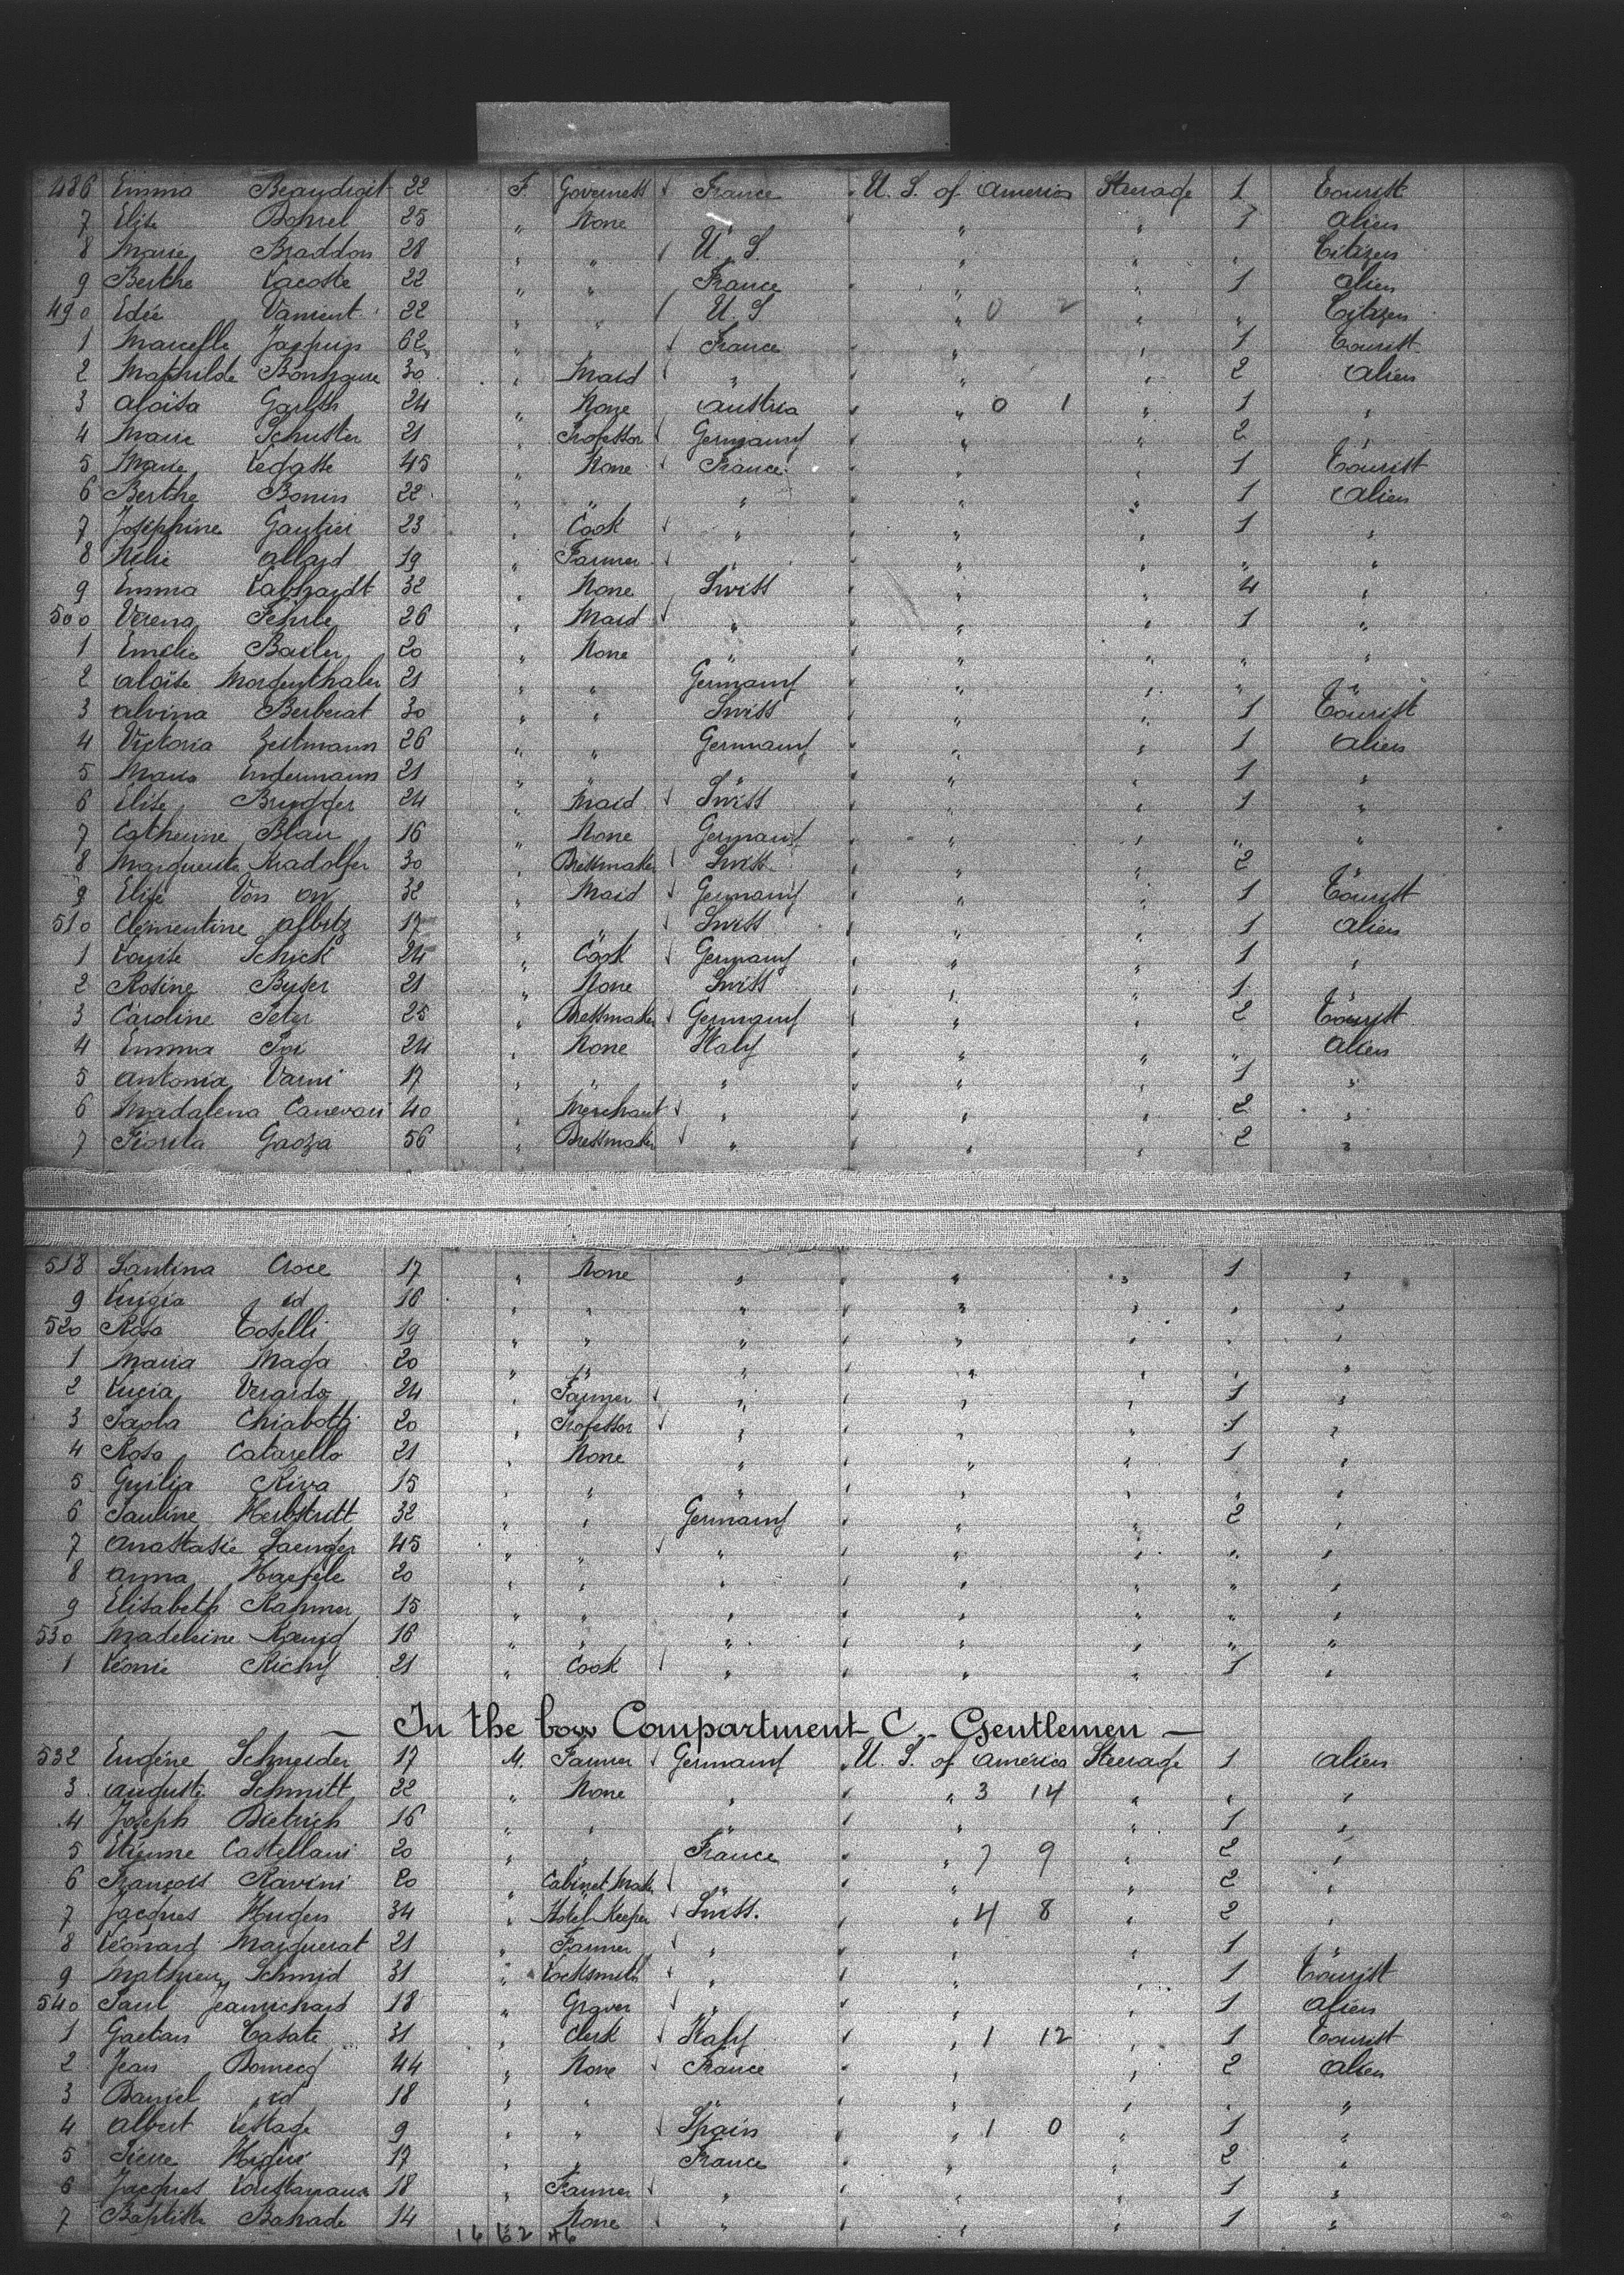 486 Emma Beaudigit 22 F. Governess √ France U. S. of America Steerage 1 Tourist
7 Elise Bohrel 25 " None " " " 1 Alien
8 Marie Braddon 28 " " √ U. S. " " " Citizen
9 Berthe Lacoste 22 " " France " " 1 Alien
490 Edée Vanient 22 " " U. S. " 0 2 " " Citizen
1 Marcelle 62 " " √ France " " 1 Tourist
2 Mathilde 30 " Maid √ " " " 2 Alien
3 Aloisa 24 " None Austria " 0 1 " 1 "
4 Marie Schuster 21 " Professor √ Germany " " 2 "
5 Marie Legasse 45 " None France " " 1 Tourist
6 Berthe Bonin 22 " " " " " 1 Alien
7 Joséphine Gautier 23 " Cook √ " " " 1 "
8 Allard 19 " Farmer " " " " "
9 Emma Labhardt 32 " None Swiss " " 4 "
500 Verena Fehrle 26 " Maid √ " " " 1 "
1 Emélie Basler 20 " None " " " " "
2 Aloïse Morgenthaler 21 " " Germany " " " "
3 Alvina Berberat 30 " " Swiss " " 1 Tourist
4 Victoria Zeitmann 26 " " Germany " " 1 Alien
5 Maria Endermann 21 " " " " " 1 "
6 Elise Brugger 24 " Maid √ Swiss " " 1 "
7 Catherine Blau 16 " None Germany " " " "
8 Marguerite Kradolfer 30 " Dressmaker √ Swiss " " 2 "
9 Elise Von 32 " Maid √ Germany " " 1 Tourist
510 Clémentine Albitz 17 " " √ Swiss " " 1 Alien
1 Louise Schick 24 " Cook √ Germany " " 1 "
2 Rosine Byser 21 " None Swiss " " 1 "
3 Caroline Peter 25 " Dressmaker √ Germany " " 2 Tourist
4 Emma 24 " None Italy " " " Alien
5 Antonia Varni 17 " " " " " 1 "
6 Madalena Canevari 40 " Merchant √ " " " 2 "
7 Fiorita Gaoza 56 " Dressmaker √ " " " 2 "
518 Santina Croce 17 " None " " " 1 "
9 Luigia id 16 " " " " " " "
520 Rosa Toselli 19 " " " " " " "
1 Maria Maga 20 " " " " " " "
2 Lucia Verardo 24 " Farmer √ " " " 1 "
3 Paola Chiabotti 20 " Professor √ " " " 1 "
4 Rosa Catarello 21 " None " " " 1 "
5 Guilia Riva 15 " " " " " " "
6 Pauline Herbstritt 32 " " Germany " " 2 "
7 Anastasie Saenger 45 " " √ " " " " "
8 Anna Haefele 20 " " " " " " "
9 Elisabeth Rahmer 15 " " " " " " "
530 Madeleine Koenig 16 " " " " " " "
1 Léonie Richy 21 " Cook √ " " " 1 "
— In the bow Compartment C. - Gentlemen —
532 Eugéne Schneider 17 M. Farmer √ Germany U. S. of America Steerage 1 Alien
3 Auguste Schmitt 22 " None " " 3 14 " " "
4 Joseph Dietrich 16 " " " " " 1 "
5 Etienne Castellani 20 " " France " 7 9 " 2 "
6 François Ravini 20 " Cabinet Mak √ " " " 2 "
7 Jacques Hugen 34 " Hotel Keeper √ Swiss. " 4 8 " 2 "
8 Léonard Marguerat 21 " Farmer √ " " " 1 "
9 Mathieu Schmid 31 " Locksmith " " " 1 Tourist
540 Paul Jeanrichard 18 " Graver √ " " " 1 Alien
1 Gaetan Casate 31 " Clerk √ Italy " 1 12 " 1 Tourist
2 Jean Domecq 44 " None √ France " " 2 Alien
3 Daniel id 18 " " " " " " "
4 Albert Lestage 9 " " √ Spain " 1 0 " 1 "
5 Pierre 17 " " France " " 2 "
6 Jacques 18 " Farmer √ " " " 1 "
7 Baptiste 14 " None √ " " " 1 "
16 62 46